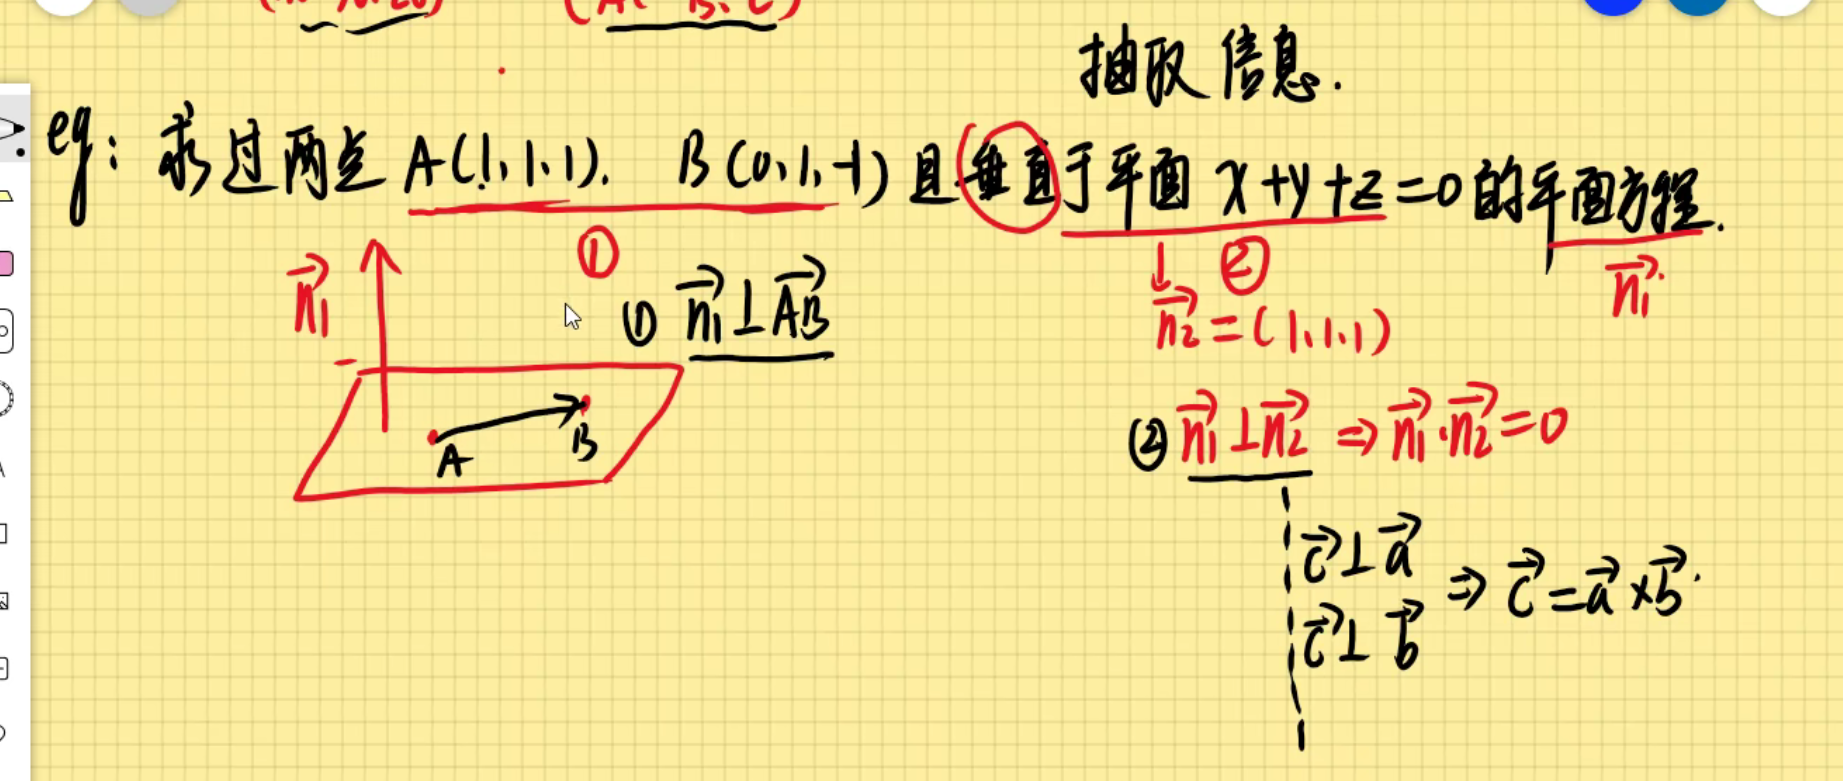 抽取信息.
eg: 求过两点 A(1,1,1). B(0,1,-1)且垂直于平面 x+y+z=0的平面方程.
①
②
n₁⃗
n₁⃗
① n₁⃗⊥AB⃗
n₂⃗=(1,1,1)
A
B
② n₁⃗⊥n₂⃗ ⇒ n₁⃗·n₂⃗=0
c⃗⊥a⃗
c⃗⊥b⃗
⇒ c⃗=a⃗×b⃗.